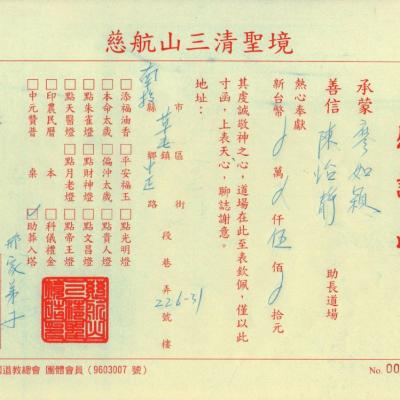 慈航山三清聖境
承蒙 廖如穎
善信 陳怡靜 助長道場
熱心奉獻
新台幣 0 萬 0 仟 伍 佰 0 拾元
其虔誠敬神之心，道場在此至表欽佩，僅以此
寸函，上表天心，聊誌謝意。
地址： 南投 縣市 草屯 鄉鎮區 中正 路街 段 巷 弄 226-31 號 樓
□添福油香 □平安福玉 □點光明燈
□本命太歲 □偏沖太歲 □點貴人燈
□點朱雀燈 □點財神燈 □點文昌燈
□點天醫燈 □點月老燈 □點帝王燈
□印農民曆 □科儀禮金
□中元贊普 桌 本 ☑助葬入塔
道教總會 團體會員（9603007 號）
No. 00